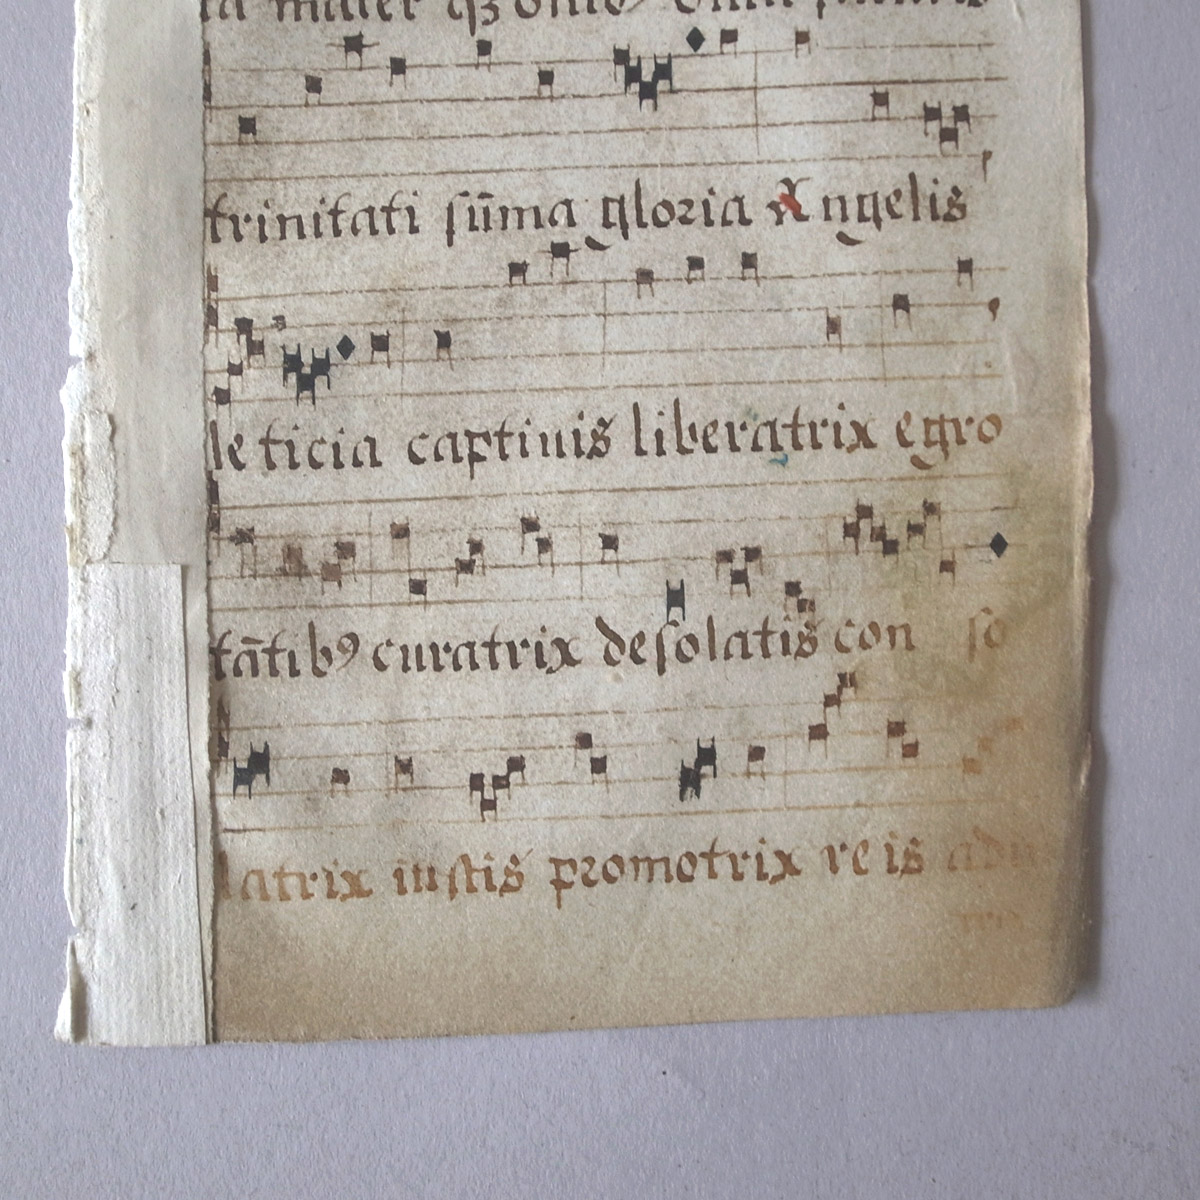 trinitati sūma gloria Angelis
leticia captiuis liberatrix egro
tātibꝰ curatrix desolatis con so
latrix iustis promotrix reis